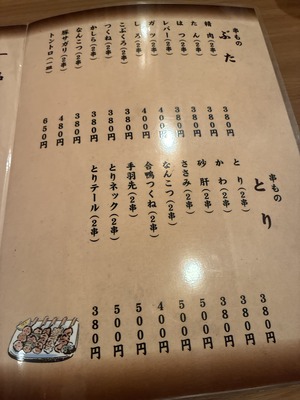 串もの
ぶた
精肉(2串) 380円
たん(2串) 380円
はつ(2串) 380円
レバー(2串) 380円
ガツ(2串) 400円
しろ(2串) 400円
こぶくろ(2串) 380円
つくね(2串) 380円
かしら(2串) 380円
なんこつ(2串) 380円
豚サガリ(2串) 480円
トントロ(一皿) 650円
串もの
とり
とり(2串) 380円
かわ(2串) 380円
砂肝(2串) 380円
ささみ(2串) 500円
なんこつ(2串) 500円
合鴨つくね(2串)
手羽先(2串) 500円
とりネック(2串) 500円
とりテール(2串) 380円